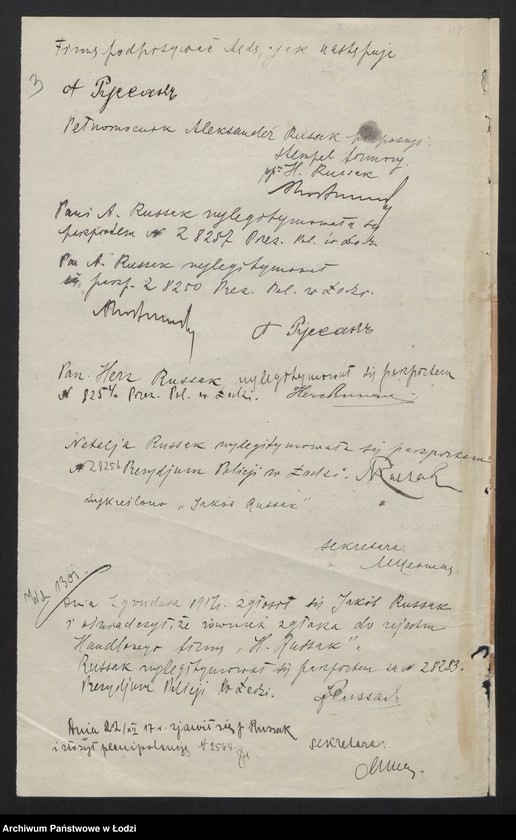 Firmę podpisywać będę, jak następuje
3
А Руссакъ
Pełnomocnik Aleksander Russak podpisuje:
stempel firmowy.
ppa H. Russak
Pani A. Russak wylegitymowała się
paszportem № Z 8257 Prez. Pol. w Łodzi
Pan A. Russak wylegitymował
się paszp. Z 8250 Prez. Pol. w Łodzi.
А Руссакъ
Pan Herz Russak wylegitymował się paszportem
№ Prez. Pol. w Łodzi.
Natalja Russak wylegitymowała się paszportem
№ Z 8256 Prezydjum Policji w Łodzi. NRussak
wykreślono „Jakób Russak”
sekretarz:
Dnia 2 grudnia 1917 r. zgłosił się Jakób Russak
i oświadczył, że również zgłasza do rejestru
Handlowego firmę „H. Russak”.
Russak wylegitymował się paszportem za № Z8283.
Prezydjum Policji w Łodzi. JRussak
Dnia 22/XI 17 r. zjawił się J Russak
i złożył plenipotencję №
sekretarz:
Archiwum Państwowe w Łodzi